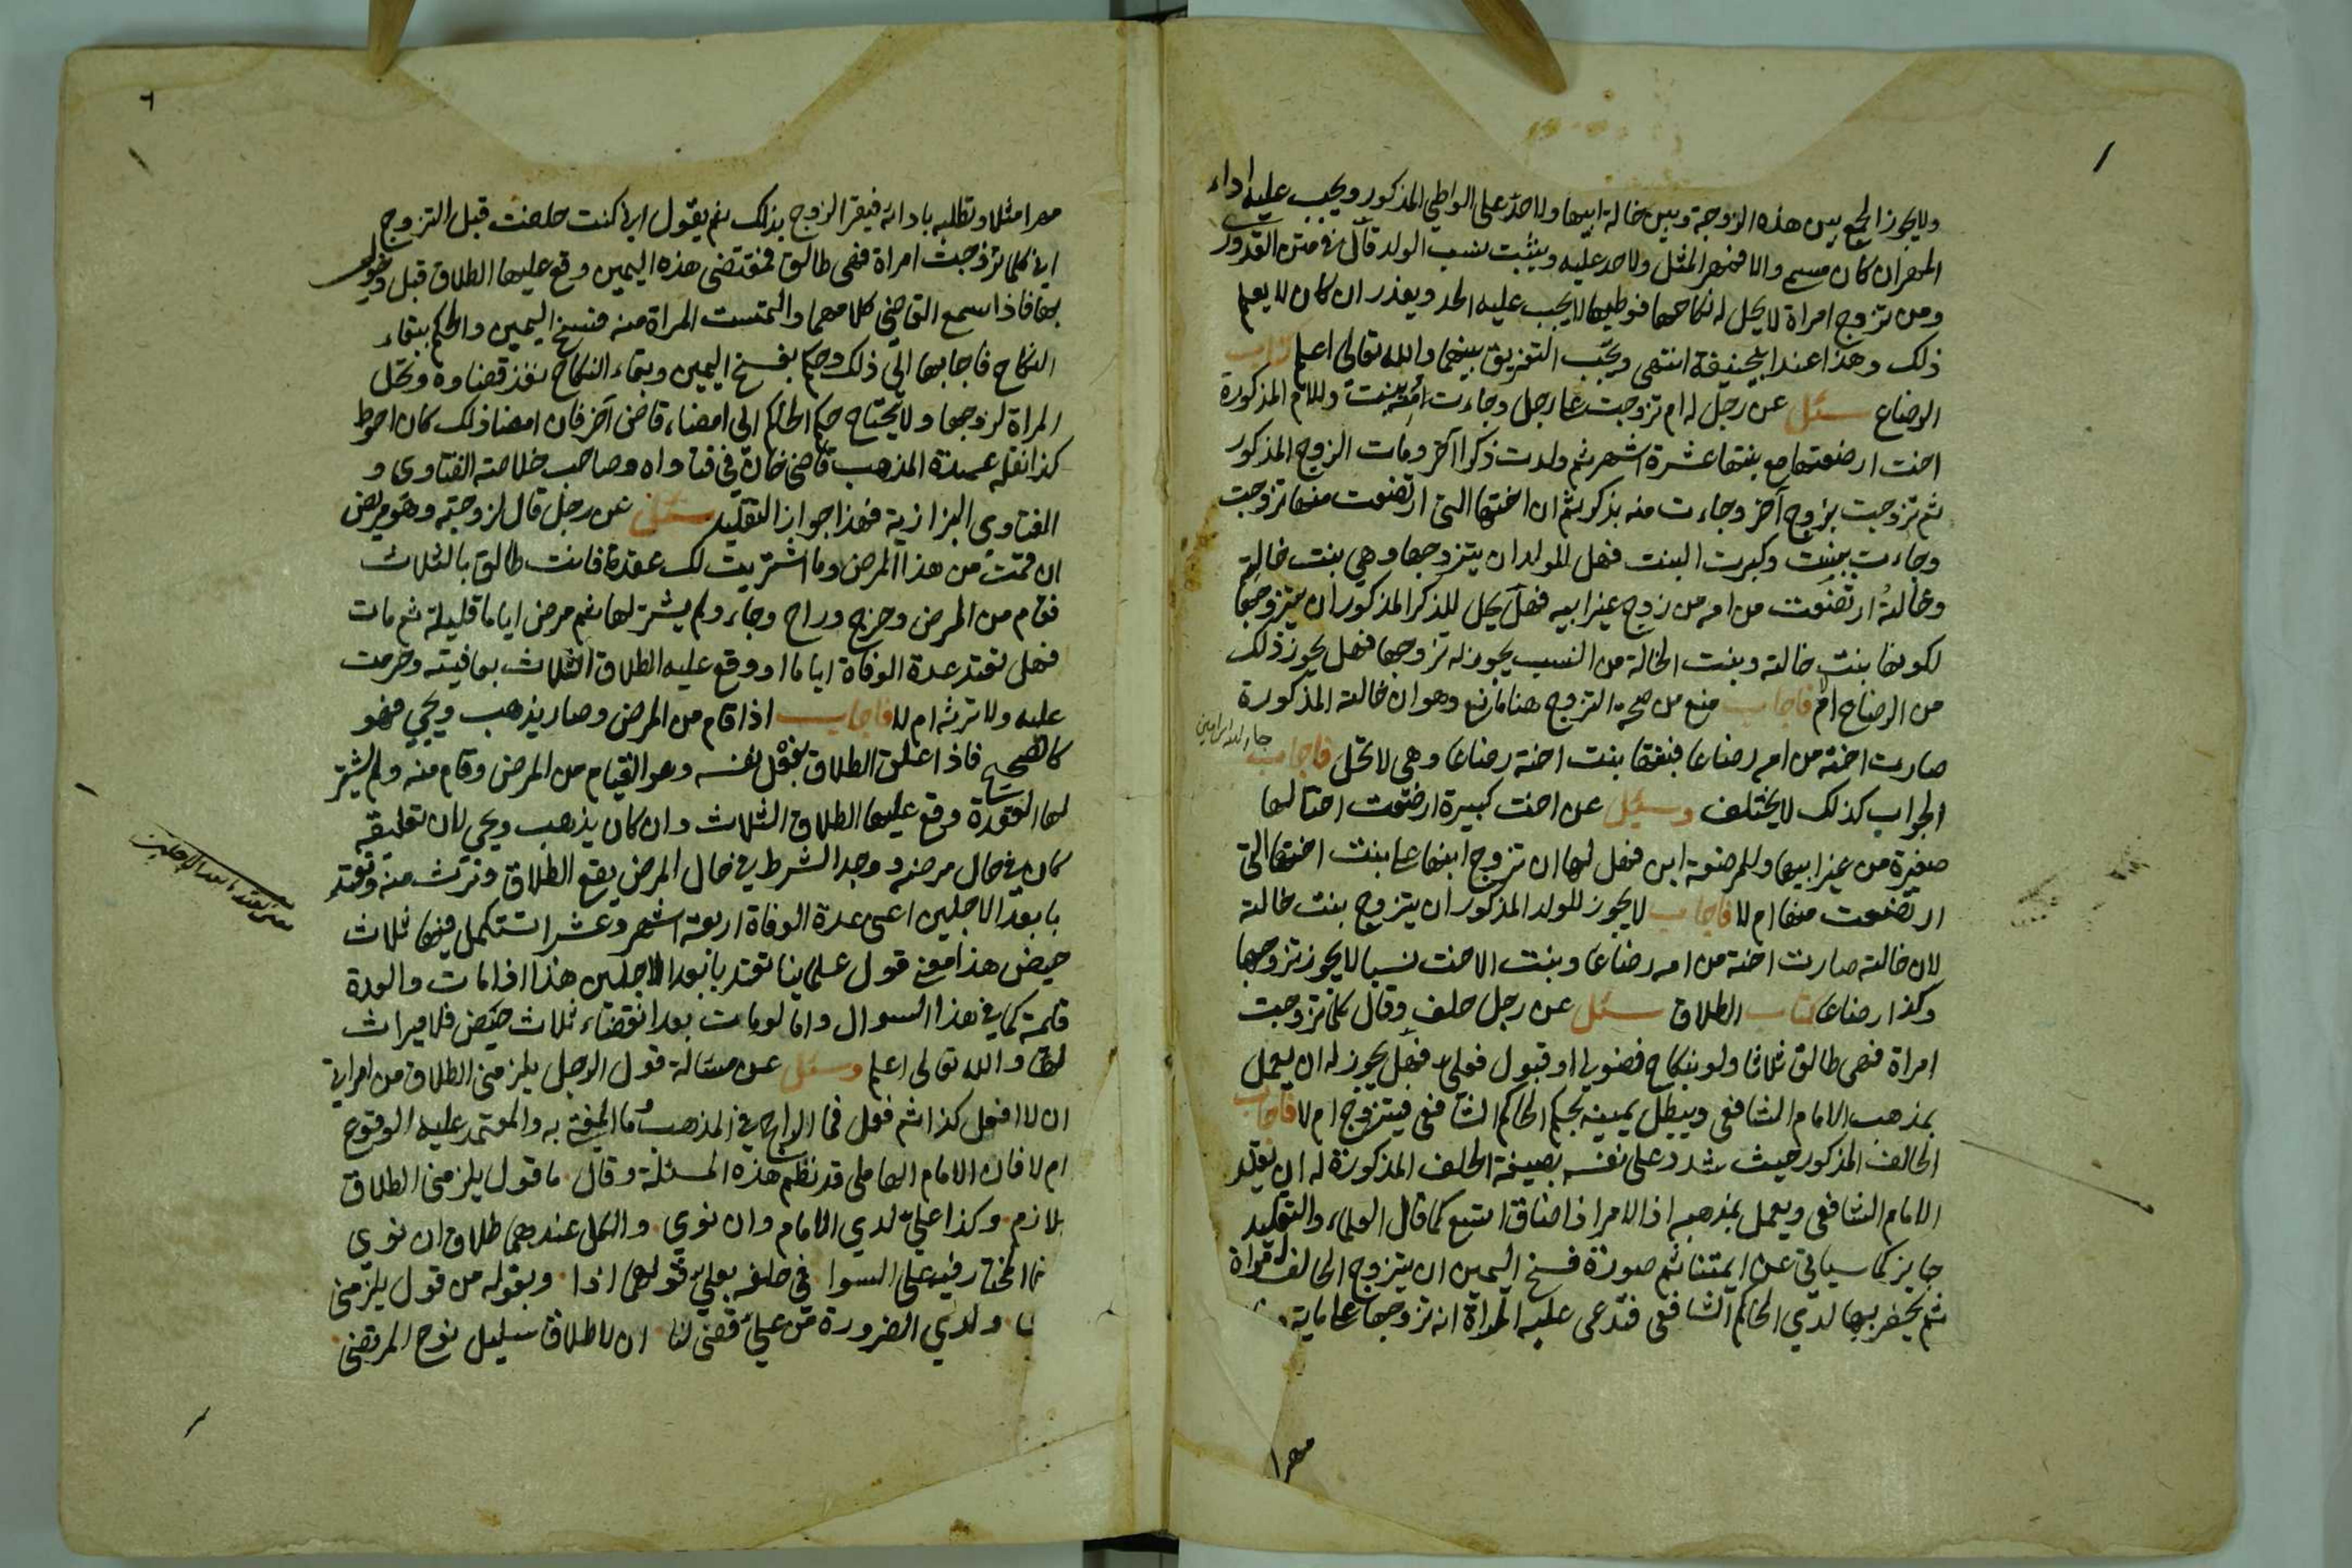 ولا يجوز الجمع بين هذه الزوجة وبين خالة ابيها ولا حد على الواطي المذكور ويجب عليه اداء
المهر ان كان مسمى والا فمهر المثل ولا حد عليه ويثبت نسب الولد قال في متن القدوري
ومن تزوج امراة لا يحل له نكاحها فوطيها لا يجب عليه الحد ويعذر ان كان لا يعلم
ذلك وهذا عند ابي حنيفة انتهى ويجب التفريق بينهما والله تعالى اعلم كتاب
الرضاع سئل عن رجل له ام تزوجت على رجل وجاءت منه ببنت وللام المذكورة
اخت ارضعتها مع بنتها عشرة اشهر ثم ولدت ذكرا آخر ومات الزوج المذكور
ثم تزوجت بزوج آخر وجاءت منه بذكر ثم ان اختها التي ارتضعت منها تزوجت
وجاءت ببنت وكبرت البنت فهل للولد ان يتزوجها وهي بنت خالته
وخالته ارتضعت من امه من زوج غير ابيه فهل يحل للذكر المذكور ان يتزوجها
لكونها بنت خالته وبنت الخالة من النسب يجوز له تزوجها فهل يجوز ذلك
من الرضاع ام لا فاجاب منع من صحة التزوج هنا مانع وهو ان خالته المذكورة
صارت اخته من امه رضاعا فبنتها بنت اخته رضاعا وهي لا تحل فاجاب
الجواب كذلك لا يختلف وسئل عن اخت كبيرة ارضعت اختا لها
صغيرة من غير ابيها وللمرضعة ابن فهل لها ان تزوج ابنها على بنت اختها التي
ارتضعت منها ام لا فاجاب لا يجوز للولد المذكور ان يتزوج بنت خالته
لان خالته صارت اخته من امه رضاعا وبنت الاخت نسبا لا يجوز تزوجها
وكذا رضاعا كتاب الطلاق سئل عن رجل حلف وقال كلما تزوجت
امراة فهي طالق ثلاثا ولو بنكاح فضولي او قبول فعلي فهل يجوز له ان يعمل
بمذهب الامام الشافعي ويبطل يمينه بحكم الحاكم الشافعي فيتزوج ام لا فاجاب
الحالف المذكور حيث شدد على نفسه بصيغة الحلف المذكورة له ان يقلد
الامام الشافعي ويعمل بمذهبه اذ الامر اذا ضاق اتسع كما قال العلماء والتقليد
جايز كما سياتي عن ايمتنا ثم صورة فسخ اليمين ان يتزوج الحالف امراة
ثم يحضر بها لدي الحاكم الشافعي فتدعي عليه المراة انه تزوجها على ماية
مهرا
مهرا مثلا وتطلبه بادائه فيقر الزوج بذلك ثم يقول اني كنت حلفت قبل التزوج
اني كلما تزوجت امراة فهي طالق فمقتضى هذه اليمين وقع عليها الطلاق قبل دخولي
بها فاذا سمع القاضي كلامهما والتمست المراة منه فسخ اليمين والحكم ببقاء
النكاح فاجابها الي ذلك وحكم بفسخ اليمين وبقاء النكاح نفذ قضاوه وتحل
المراة لزوجها ولا يحتاج حكم الحاكم الي امضاء قاض آخر فان امضا ذلك كان احوط
كذا نقله عمدة المذهب قاضي خان في فتاواه وصاحب خلاصة الفتاوى و
الفتاوى البزازية فهذا جواز التقليد سئل عن رجل قال لزوجته وهو مريض
ان قمت من هذا المرض وما اشتريت لك عقدة فانت طالق بالثلاث
فقام من المرض وخرج وراح وجاء ولم يشتر لها ثم مرض اياما قليلة ثم مات
فهل تعتد عدة الوفاة اياما او وقع عليه الطلاق الثلاث بعافيته وحرمت
عليه ولا ترثه ام لا فاجاب اذا قام من المرض وصار يذهب ويجي فهو
كالصحيح فاذا علق الطلاق بفعل نفسه وهو القيام من المرض وقام منه ولم يشتر
لها العقدة وقع عليها الطلاق الثلاث وان كان يذهب ويجي لان تعليقه
كان في حال مرضه ووجد الشرط في حال المرض يقع الطلاق وترث منه وتعتد
بابعد الاجلين اعني عدة الوفاة اربعة اشهر وعشرا تستكمل فيها ثلاث
حيض هذا معنى قول علماينا تعتد بابعد الاجلين هذا اذا مات والعدة
قائمة كما في هذا السوال واما لو مات بعد انقضاء ثلاث حيض فلا ميراث
لها والله تعالى اعلم وسئل عن مسالة قول الرجل يلزمني الطلاق من امراتي
ان لا افعل كذا ثم فعل فما الراجح في المذهب وما المفتى به والمعتمد عليه الوقوع
ام لا فان الامام العاملي قد نظم هذه المسئلة وقال ما قول يلزمني الطلاق
بلازم وكذا علي لدي الامام وان نوي والكل عندهما طلاق ان نوي
فما المختار فيه على السوا في حلفه بعلي قولهما اذا وبقوله من قول يلزمني
ولدي الضرورة من علي قضى لنا ان لا طلاق سليل نوح المرتضى